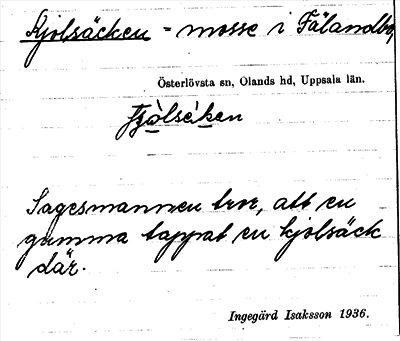 Kjolsäcken - mosse i Fålandbo,
Österlövsta sn, Olands hd, Uppsala län.
Sagesmannen tror, att en
gumma tappat en kjolsäck
där.
Ingegärd Isaksson 1936.